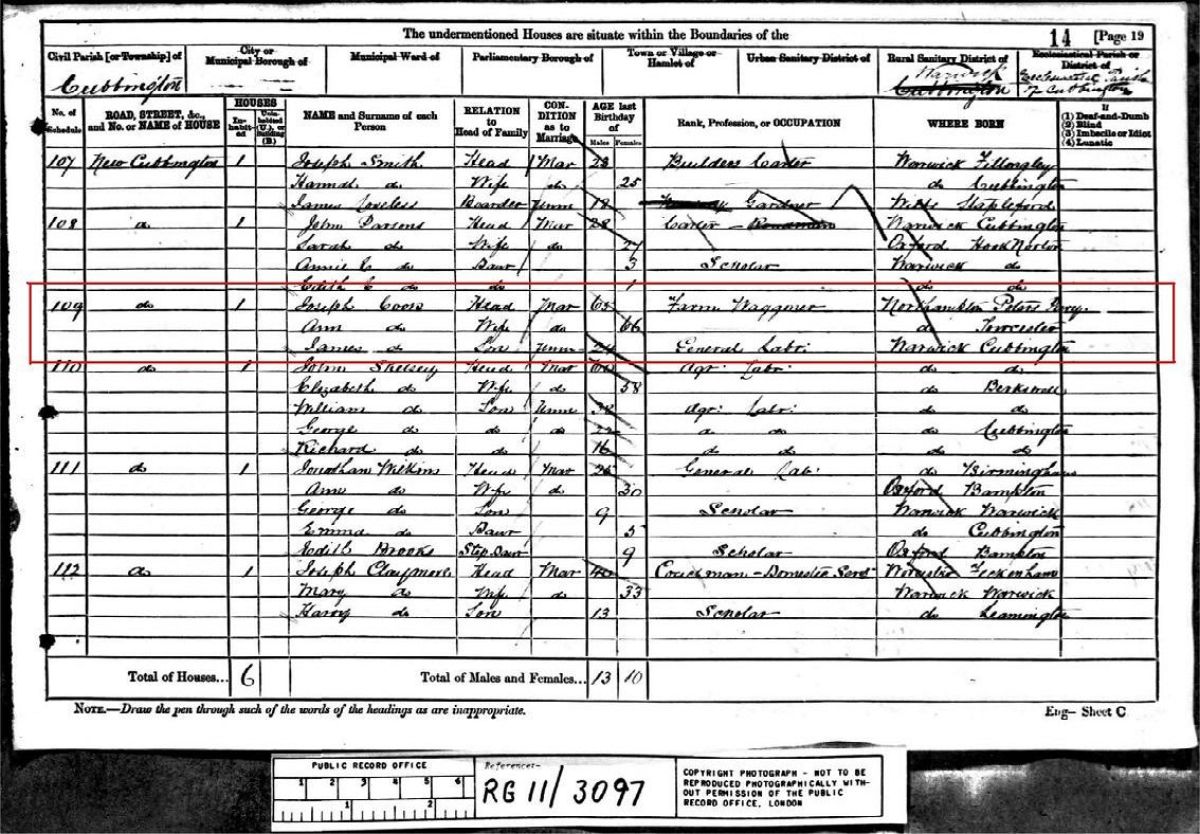 The undermentioned Houses are situate within the Boundaries of the
14 [Page 19
Civil Parish [or Township] of
Cubbington
City or Municipal Borough of
Municipal Ward of
Parliamentary Borough of
Town or Village or Hamlet of
Urban Sanitary District of
Rural Sanitary District of
Warwick
Cubbington
Ecclesiastical Parish or District of
Ecclesiastical Parish of Cubbington
No. of Schedule
ROAD, STREET, &c., and No. or NAME of HOUSE
HOUSES
Inhabited
Uninhabited (U.), or Building (B.)
NAME and Surname of each Person
RELATION to Head of Family
CONDITION as to Marriage
AGE last Birthday of
Males
Females
Rank, Profession, or OCCUPATION
WHERE BORN
If
(1) Deaf-and-Dumb
(2) Blind
(3) Imbecile or Idiot
(4) Lunatic
107 New Cubbington 1 Joseph Smith Head Mar 28 Builders Carter Warwick Fillongley
Hannah do Wife do 25 do Cubbington
James Loveless Boarder Unm 18 Gardner Wilts Stapleford
108 do 1 John Parsons Head Mar 28 Carter Warwick Cubbington
Sarah do Wife do 27 Oxford Hook Norton
Annie E do Daur 3 Scholar Warwick do
Edith E do do 1 do do
109 do 1 Joseph Head Mar Farm Waggoner Northampton
Ann do Wife do 66 do Towcester
James do Son Unm 24 General Labr: Warwick Cubbington
110 do 1 John Shelsey Head Mar 60 Agr: Labr: do do
Elizabeth do Wife do 58 do Berkswell
William do Son Unm Agr: Labr: do do
George do do do 22 do do do Cubbington
Richard do do 16 do do do do
111 do 1 Jonathan Wilkins Head Mar General Lab: do Birmingham
Ann do Wife do 30 Oxford Bampton
George do Son 9 Scholar Warwick Warwick
Emma do Daur 5 do Cubbington
Edith Brooks Step Daur 9 Scholar Oxford Bampton
112 do 1 Joseph Head Mar 40 Coachman - Domestic Servt Worcester Feckenham
Mary do Wife do 33 Warwick Warwick
Harry do Son 13 Scholar do Leamington
Total of Houses... 6 Total of Males and Females... 13 10
NOTE.—Draw the pen through such of the words of the headings as are inappropriate.
Eng— Sheet C
PUBLIC RECORD OFFICE
1 2 3 4 5 6
1 2
Reference:-
RG 11/3097
COPYRIGHT PHOTOGRAPH - NOT TO BE
REPRODUCED PHOTOGRAPHICALLY WITH-
OUT PERMISSION OF THE PUBLIC
RECORD OFFICE, LONDON